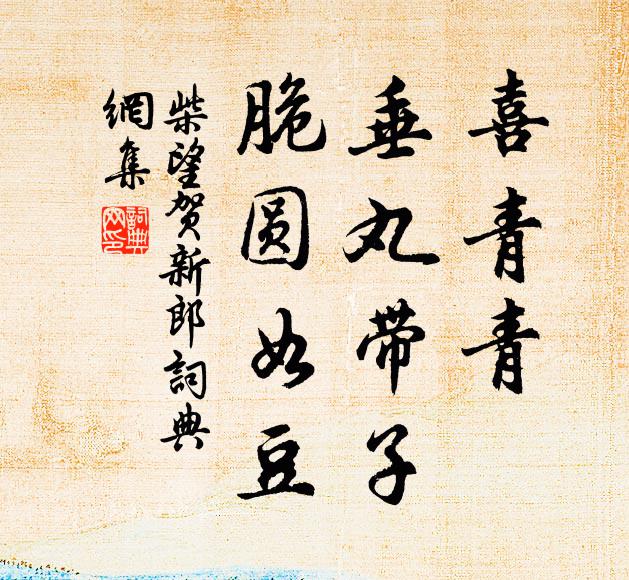 喜青青
垂丸带子
脆圆如豆
柴望贺新郎詞典
網集
詞典
网印